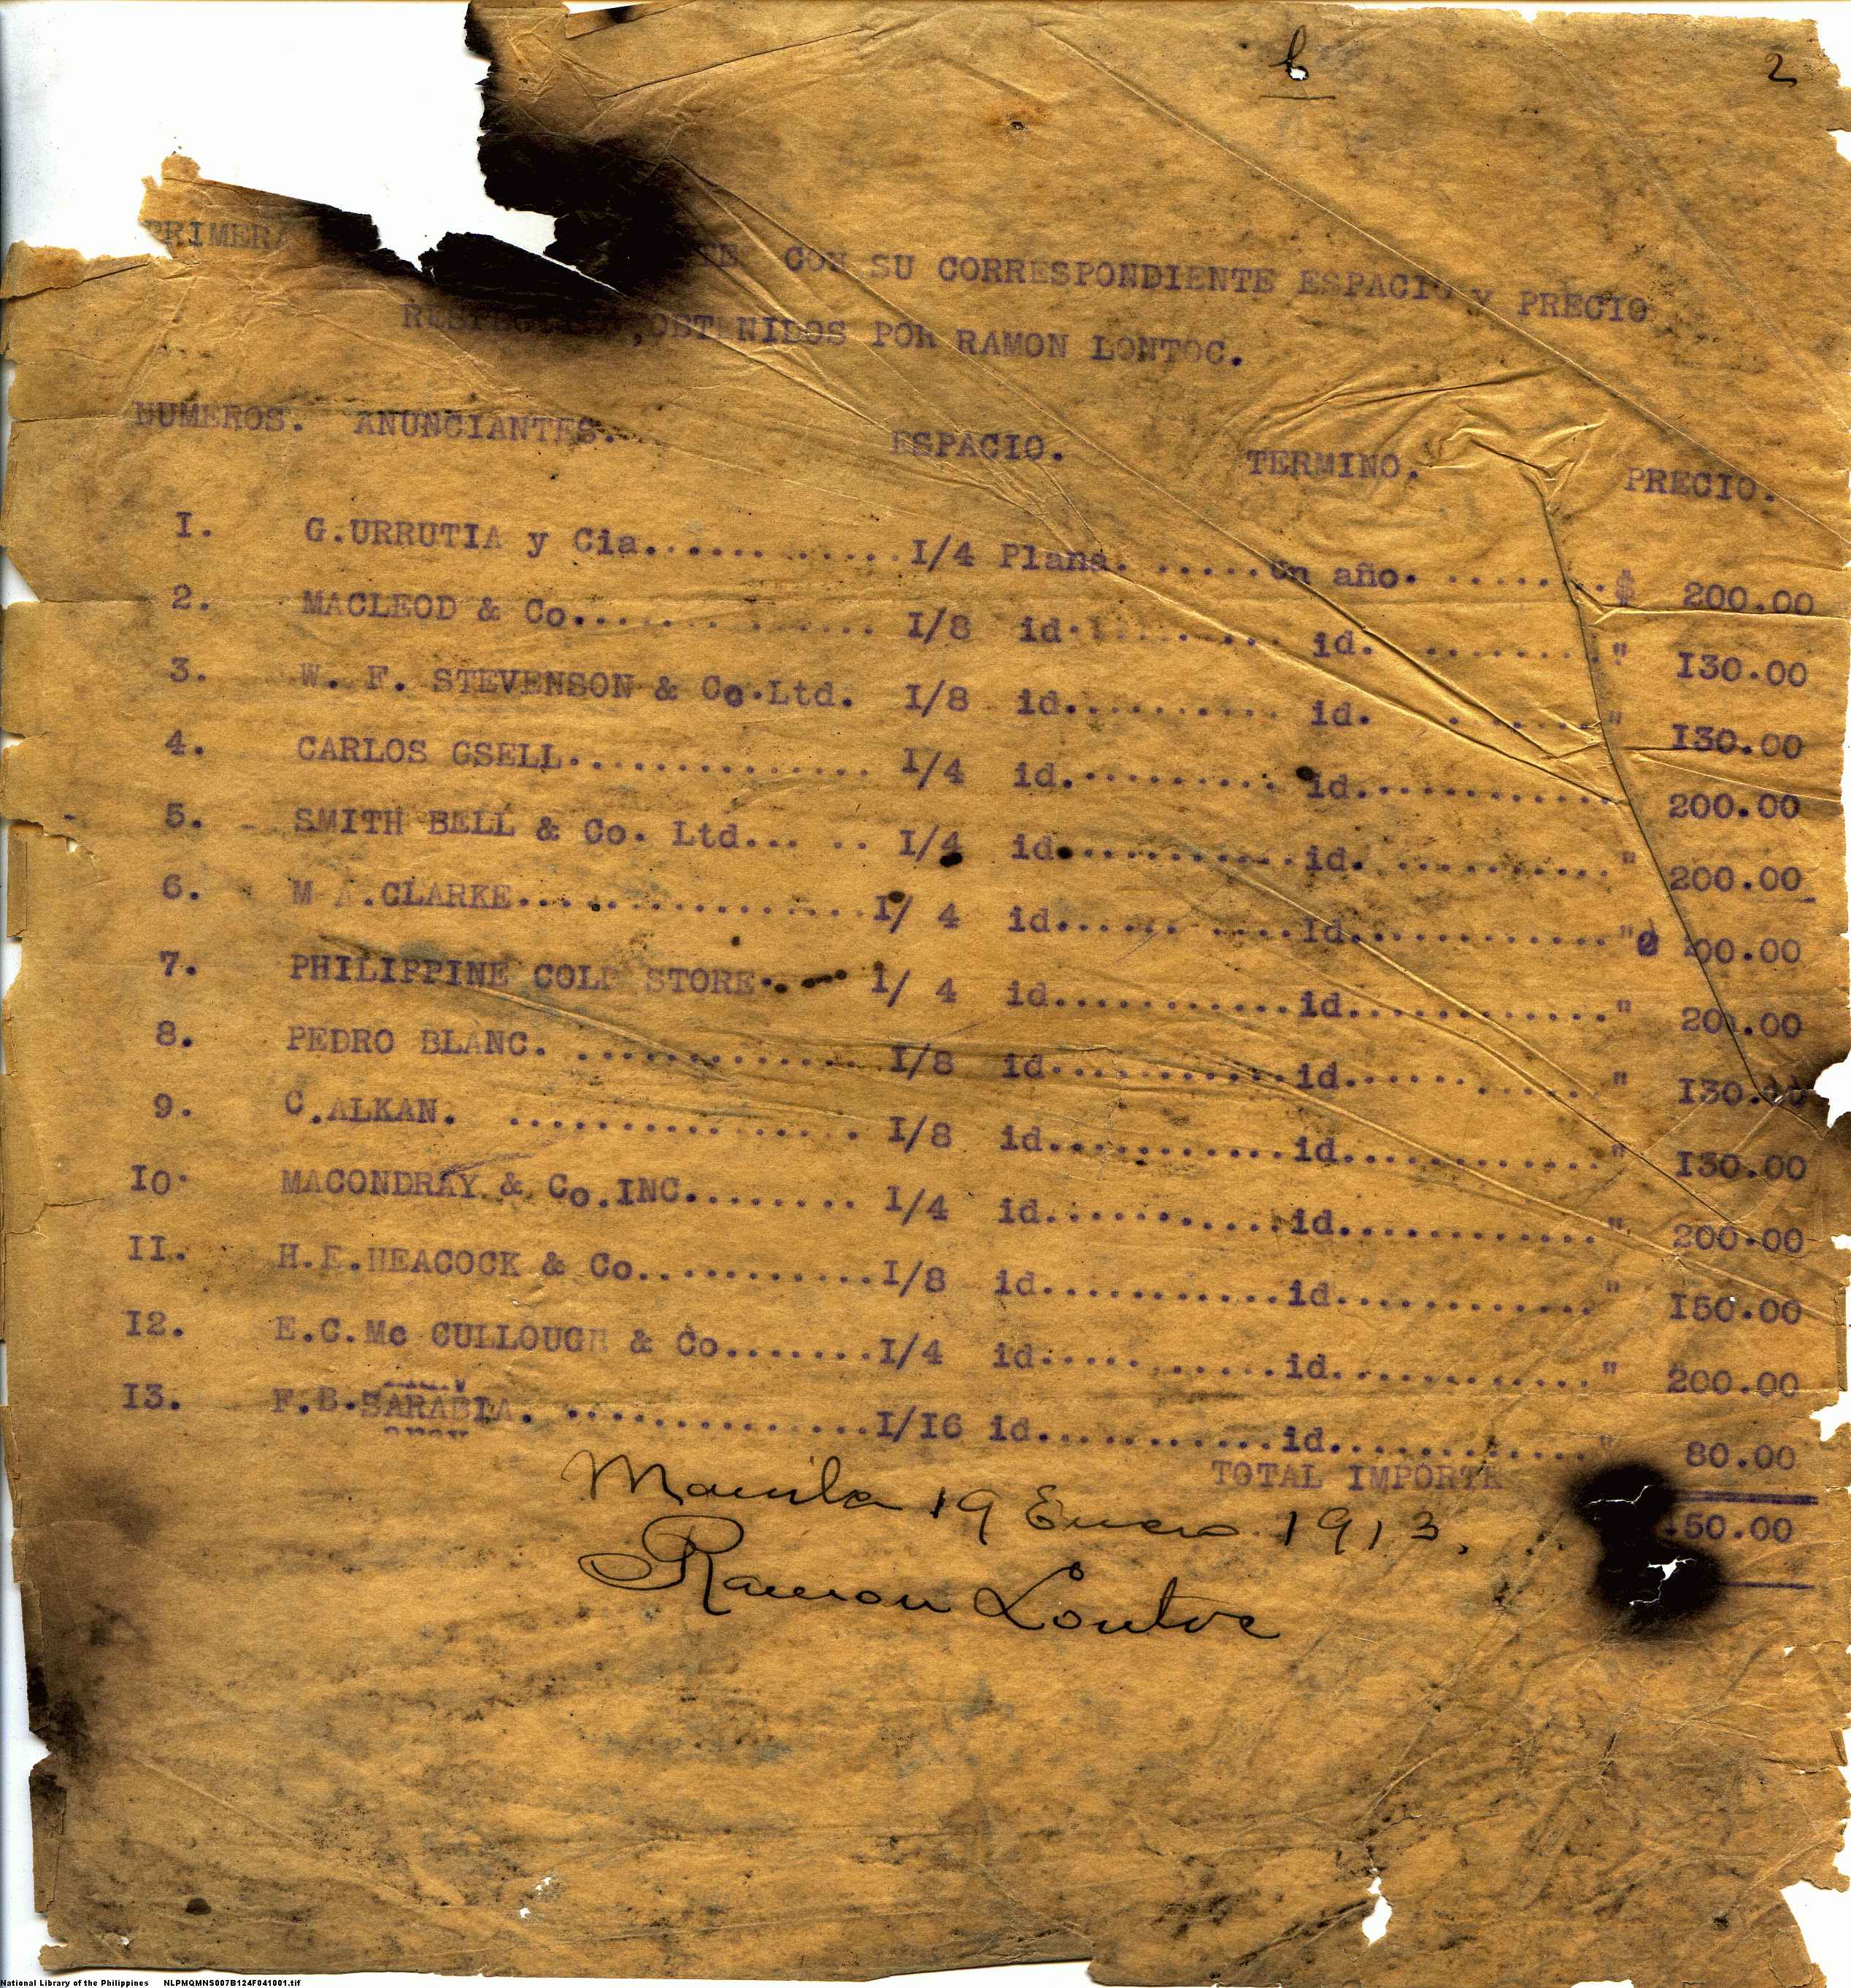 b
2
PRIMERA CON SU CORRESPONDIENTE ESPACIO y PRECIO
,OBTENIDOS POR RAMON LONTOC.
NUMEROS. ANUNCIANTES. ESPACIO. TERMINO. PRECIO.
I. G.URRUTIA y Cia. I/4 Plana. Un año. $ 200.00
2. MACLEOD & Co. I/8 id. id. " I30.00
3. W. F. STEVENSON & Co.Ltd. I/8 id. id. " I30.00
4. CARLOS GSELL. I/4 id. id. 200.00
5. SMITH BELL & Co. Ltd. I/4 id. id. " 200.00
6. M A.CLARKE. I/ 4 id. Id. " 200.00
7. PHILIPPINE COLD STORE. 1/ 4 id. id. " 200.00
8. PEDRO BLANC. I/8 id. id. " I30.00
9. C.ALKAN. I/8 id. id. " I30.00
Io. MACONDRAY & Co.INC. I/4 id. id. " 200.00
II. H.E.HEACOCK & Co. I/8 id. id. " I50.00
I2. E.C.Mc CULLOUGH & Co. I/4 id. id. " 200.00
I3. F.B.SARABIA. I/I6 id. id. " 80.00
TOTAL IMPORTE 50.00
Manila 19 Enero 1913.
Ramon Lontoc
National Library of the Philippines NLPMQMNS007B124F041001.tif